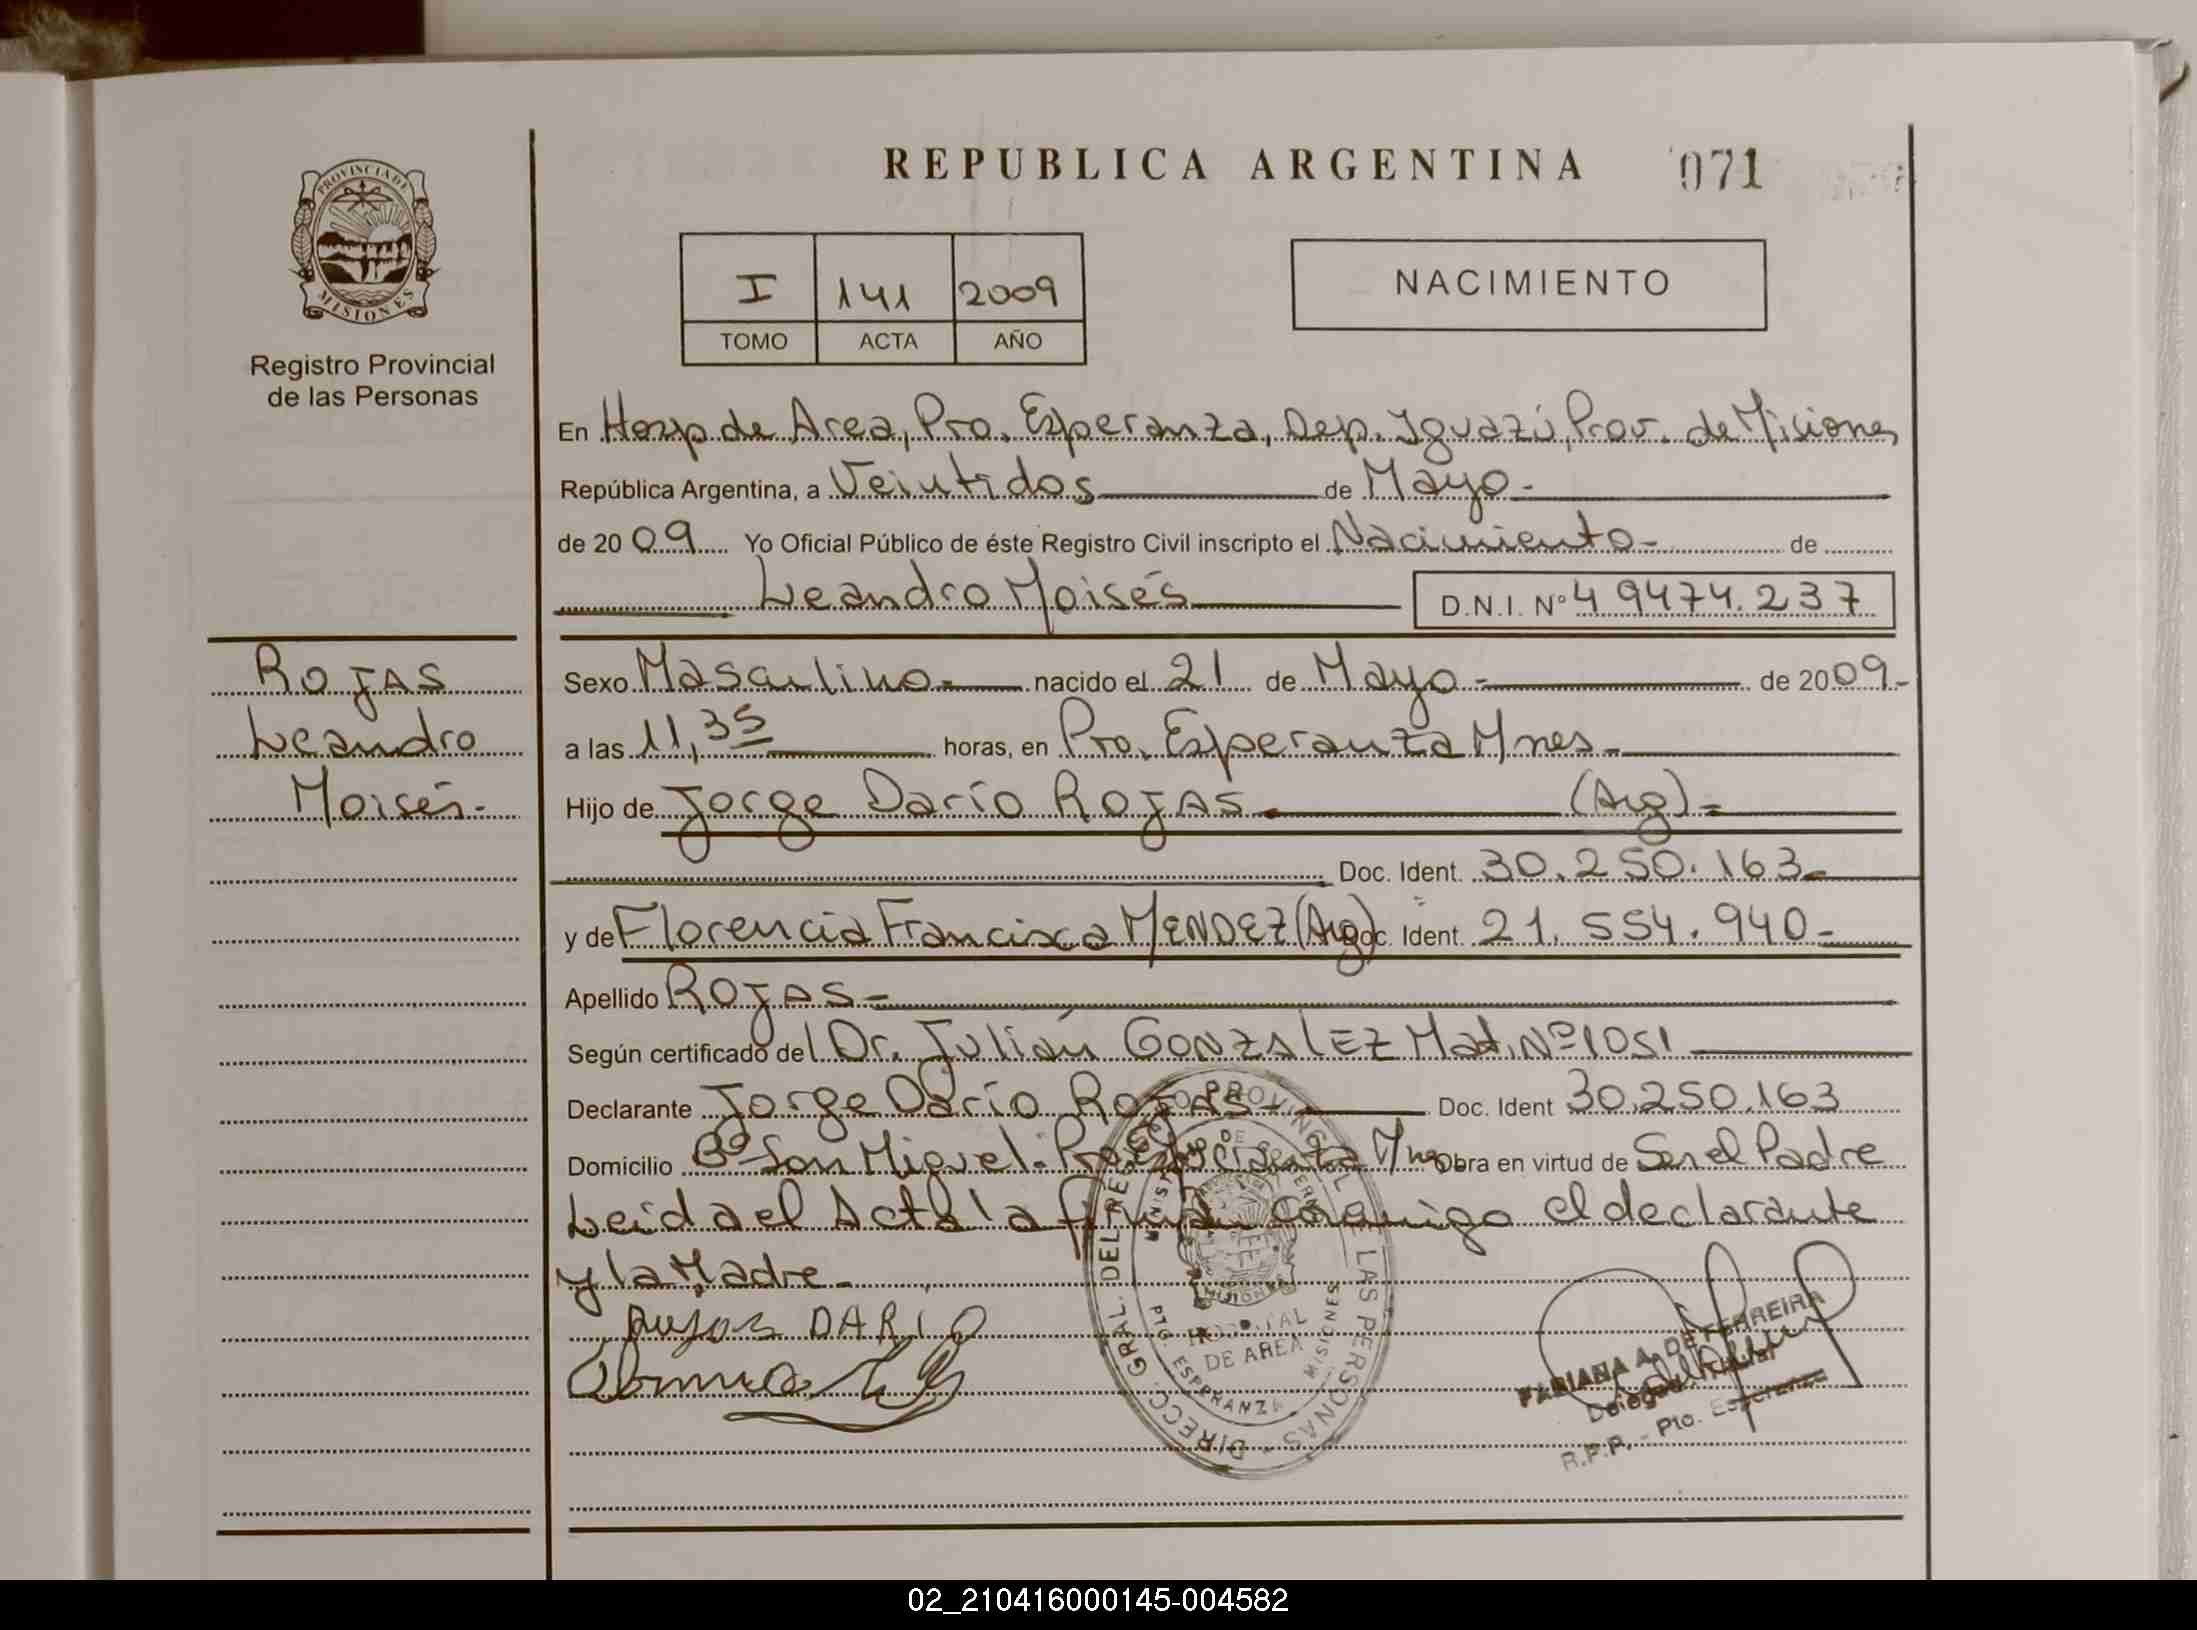 REPUBLICA ARGENTINA 071
PROVINCIA DE
MISIONES
Registro Provincial
de las Personas
I 141 2009
TOMO ACTA AÑO
NACIMIENTO
En Hosp de Area, Pto. Esperanza, Dep. Iguazú, Prov. de Misiones
República Argentina, a Veintidos de Mayo-
de 2009 Yo Oficial Público de éste Registro Civil inscripto el Nacimiento- de
Leandro Moisés D.N.I. Nº 49474.237
Rojas
Leandro
Moisés-
Sexo Masculino- nacido el 21 de Mayo- de 2009-
a las 11,35 horas, en Pto. Esperanza Mnes-
Hijo de Jorge Darío Rojas- (Arg)-
Doc. Ident. 30.250.163-
y de Florencia Francisca MENDEZ (Arg) Doc. Ident 21.554.940-
Apellido Rojas-
Según certificado del Dr. Julián GONZALEZ Mat. Nº 1051
Declarante Jorge Darío Rojas- Doc. Ident 30.250.163
Domicilio Bº San Miguel- Pto Esperanza Mnes Obra en virtud de Ser el Padre
Leida el Acta la firman conmigo el declarante
y la Madre-
Rojas DARIO
DIRECC. GRAL. DEL REGISTRO PROVINCIAL DE LAS PERSONAS
MINISTERIO DE GOBIERNO
MISIONES
HOSPITAL
DE AREA
PTO. ESPERANZA MISIONES
FABIANA A. DE FERREIRA
Delegada Titular
R.P.P. - Pto. Esperanza
02_210416000145-004582